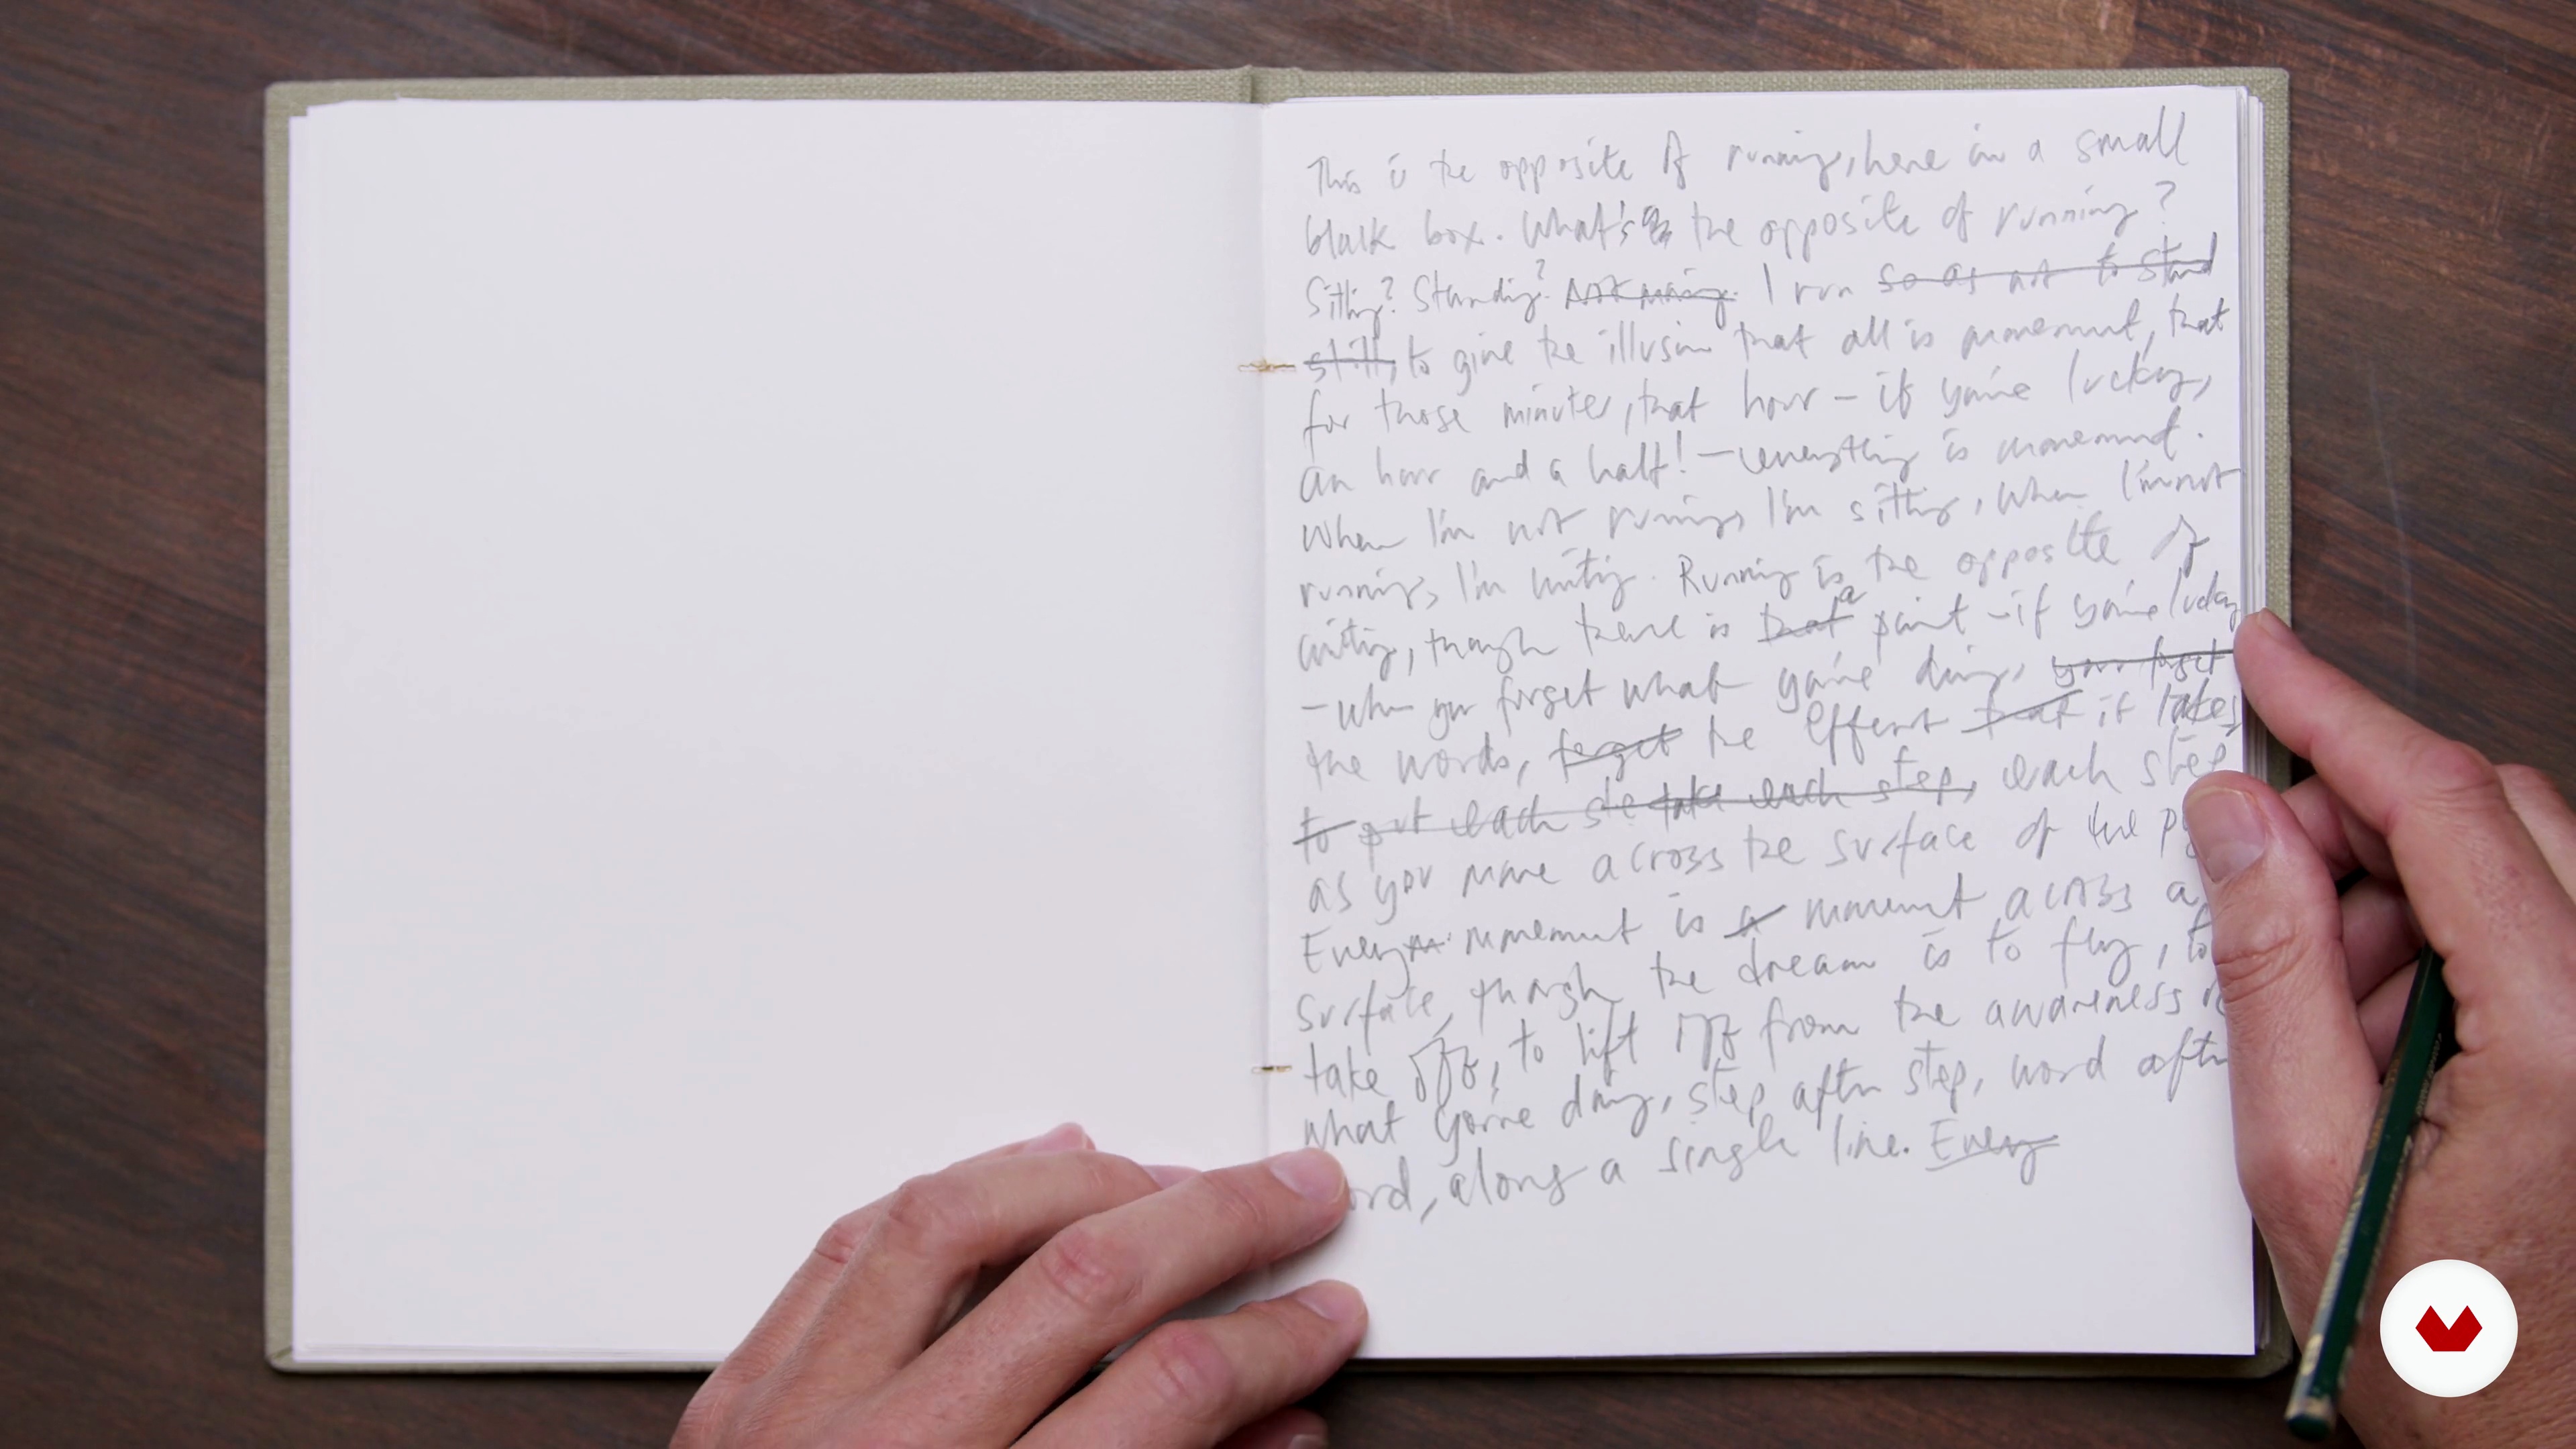 This is the opposite of running, here in a small
black box. What's the opposite of running?
Sitting? Standing? Not moving. I run so as not to stand
still, to give the illusion that all is movement, that
for those minutes, that hour – if you're lucky,
an hour and a half! – everything is movement.
When I'm not running, I'm sitting, when I'm not
running, I'm writing. Running is the opposite of
writing, though there is that a point – if you're lucky
– when you forget what you're doing, you forget
the words, forget the effort that it takes
to put each ste take each step, each step
as you move across the surface of the
Every movement is a movement across a
surface, though the dream is to fly, to
take off, to lift off from the awareness of
what you're doing, step after step, word after
along a single line. Every